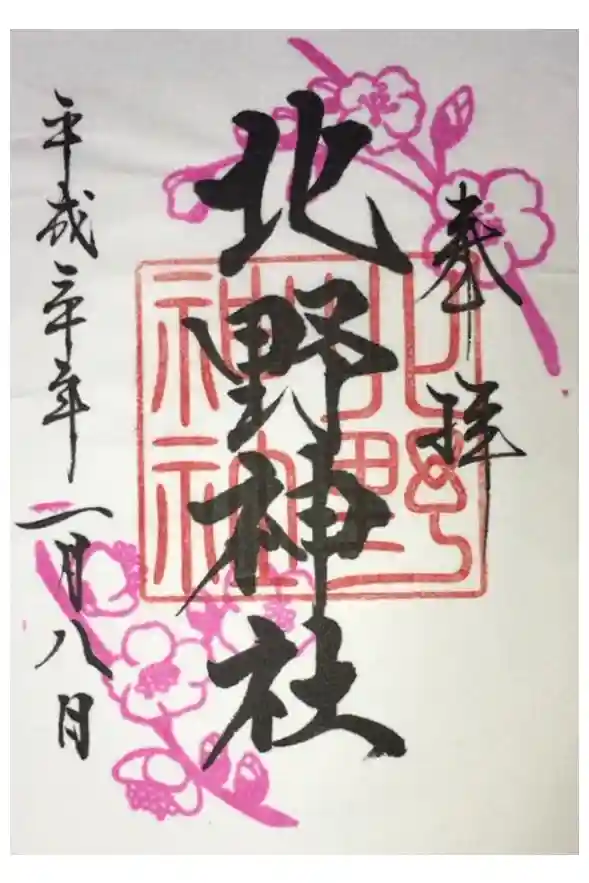 奉拝
北野神社
北野神社
平成三十年一月八日